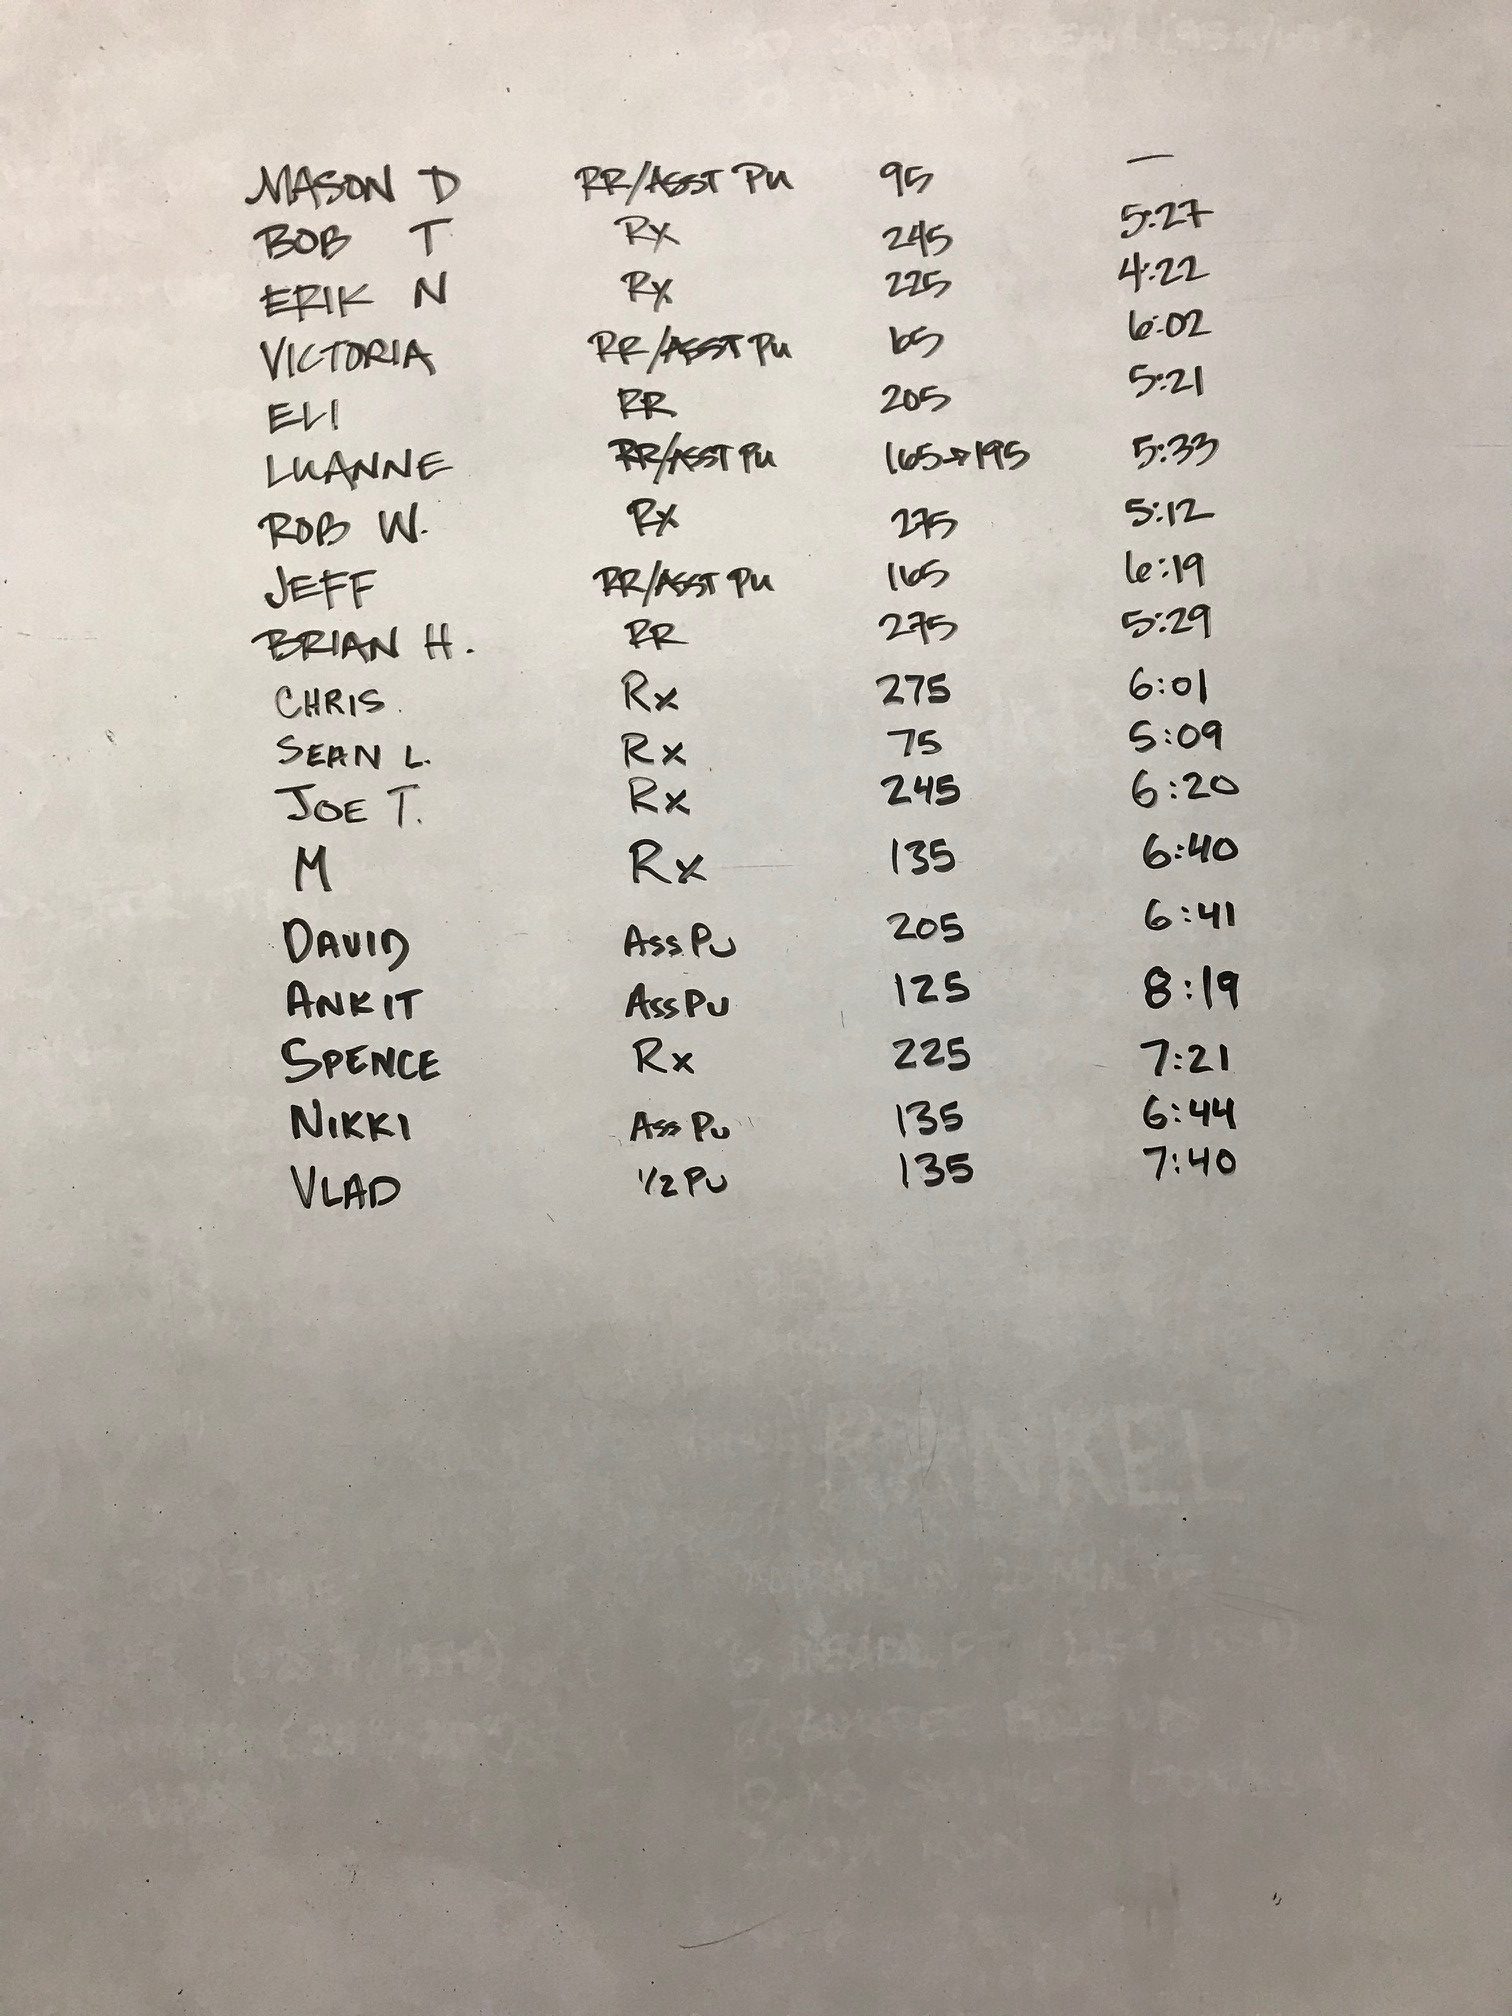 MASON D RR/ASST PU 95 —
BOB T RX 245 5:27
ERIK N RX 225 4:22
VICTORIA RR/ASST PU 65 6:02
ELI RR 205 5:21
LUANNE RR/ASST PU 165→195 5:33
ROB W. RX 275 5:12
JEFF RR/ASST PU 165 6:19
BRIAN H. RR 275 5:29
CHRIS Rx 275 6:01
SEAN L. Rx 75 5:09
JOE T. Rx 245 6:20
M Rx 135 6:40
DAVID ASS PU 205 6:41
ANKIT ASS PU 125 8:19
SPENCE Rx 225 7:21
NIKKI ASS PU 135 6:44
VLAD 1/2 PU 135 7:40